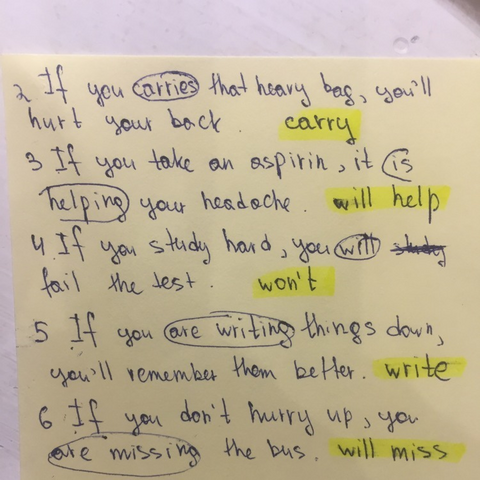 2 If you carries that heavy bag, you'll
hurt your back. carry
3 If you take an aspirin, it is
helping your headache. will help
4. If you study hard, you will study
fail the test. won't
5 If you are writing things down,
you'll remember them better. write
6 If you don't hurry up, you
are missing the bus. will miss